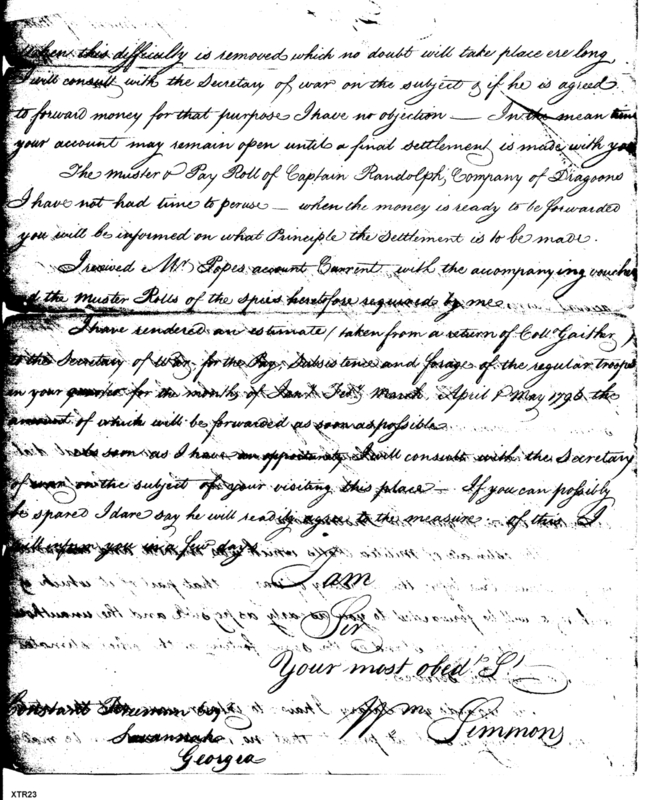 when this difficulty is removed which no doubt will take place ere long
I will consult with the Secretary of war on the subject & if he is agreed
to forward money for that purpose I have no objection — In the mean time
your account may remain open until a final settlement is made with you
The muster & Pay Roll of Captain Randolph, Company of Dragoons
I have not had time to peruse — when the money is ready to be forwarded
you will be informed on what Principle the Settlement is to be made.
I received Mr Popes account Current with the accompanying vouchers
and the muster Rolls of the spies heretofore required by me
I have rendered an estimate (taken from a return of Coll. Gaither)
to the Secretary of War for the Pay, Subsistence and forage of the regular troops
in your quarter for the months of Jany Feby March, April & May 1795 the
amount of which will be forwarded as soon as possible
As soon as I have an opportunity I will consult with the Secretary
of war on the subject of your visiting this place — If you can possibly
be spared I dare say he will readily agree to the measure — of this I
will inform you in a few days
I am
Sir
Your most obedt St
Wm Simmons
Constant Freeman Esq
Savannah
Georgia
XTR23